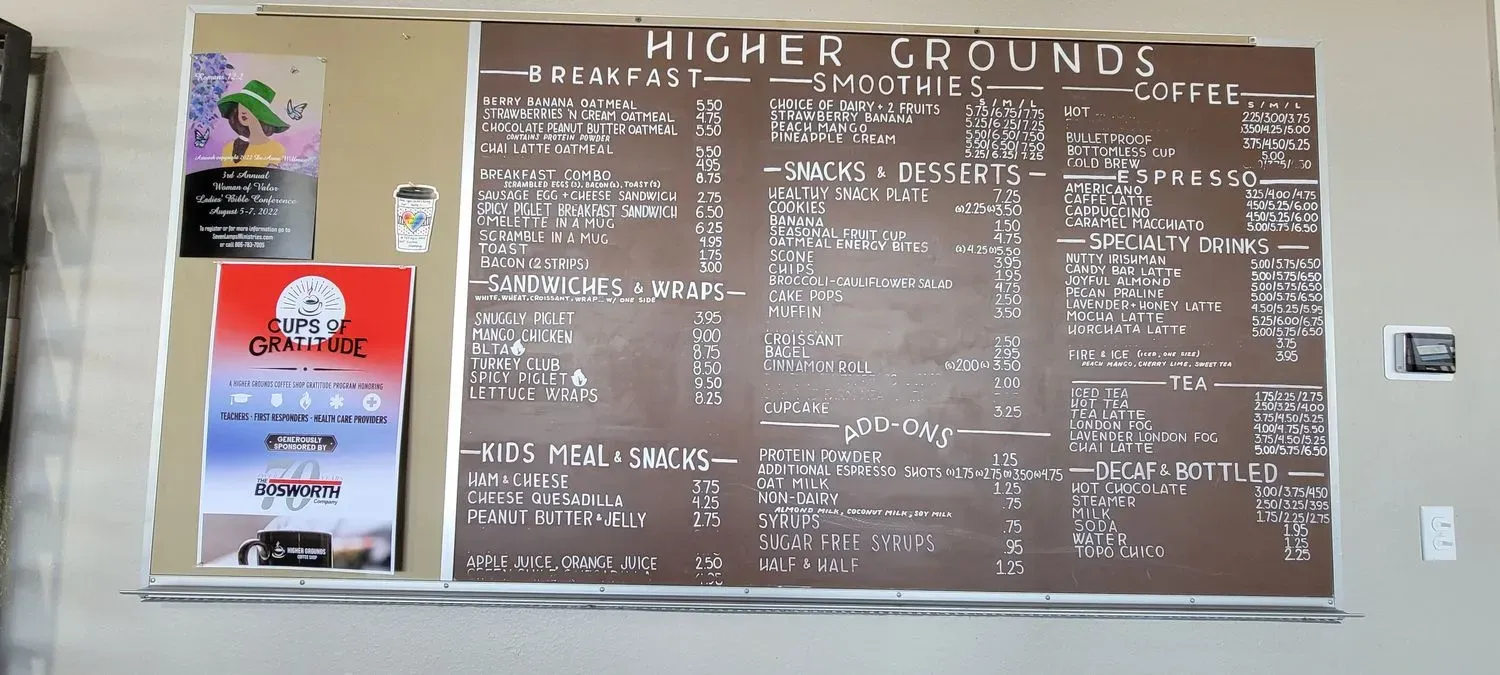 Romans 12:2
3rd Annual
Woman of Valor
Ladies' Bible Conference
August 5-7, 2022
To register or for more information go to
SevenLampsMinistries.com
or call 806-783-7005
CUPS OF
GRATITUDE
A HIGHER GROUNDS COFFEE SHOP GRATITUDE PROGRAM HONORING
TEACHERS · FIRST RESPONDERS · HEALTH CARE PROVIDERS
GENEROUSLY
SPONSORED BY
70 YEARS
THE BOSWORTH Company
HIGHER GROUNDS
COFFEE SHOP
HIGHER GROUNDS
BREAKFAST
BERRY BANANA OATMEAL 5.50
STRAWBERRIES 'N CREAM OATMEAL 4.75
CHOCOLATE PEANUT BUTTER OATMEAL 5.50
CONTAINS PROTEIN POWDER
CHAI LATTE OATMEAL 5.50
4.95
BREAKFAST COMBO 8.75
SCRAMBLED EGGS (2), BACON (2), TOAST (2)
SAUSAGE EGG + CHEESE SANDWICH 2.75
SPICY PIGLET BREAKFAST SANDWICH 6.50
OMELETTE IN A MUG 6.25
SCRAMBLE IN A MUG 4.95
TOAST 1.75
BACON (2 STRIPS) 3.00
SANDWICHES & WRAPS
WHITE, WHEAT, CROISSANT, WRAP... W/ ONE SIDE
SNUGGLY PIGLET 3.95
MANGO CHICKEN 9.00
BLTA 8.75
TURKEY CLUB 8.50
SPICY PIGLET 9.50
LETTUCE WRAPS 8.25
KIDS MEAL & SNACKS
HAM & CHEESE 3.75
CHEESE QUESADILLA 4.25
PEANUT BUTTER & JELLY 2.75
APPLE JUICE, ORANGE JUICE 2.50
SMOOTHIES
S / M / L
CHOICE OF DAIRY + 2 FRUITS 5.75/6.75/7.75
STRAWBERRY BANANA 5.25/6.25/7.25
PEACH MANGO 5.50/6.50/7.50
PINEAPPLE CREAM 5.50/6.50/7.50
5.25/6.25/7.25
SNACKS & DESSERTS
HEALTHY SNACK PLATE 7.25
COOKIES (2) 2.25 (4) 3.50
BANANA 1.50
SEASONAL FRUIT CUP 4.75
OATMEAL ENERGY BITES 5.50
SCONE 3.95
CHIPS 1.95
BROCCOLI-CAULIFLOWER SALAD 4.75
CAKE POPS 2.50
MUFFIN 3.50
CROISSANT 2.50
BAGEL 2.95
CINNAMON ROLL (S) 2.00 (L) 3.50
2.00
CUPCAKE 3.25
ADD-ONS
PROTEIN POWDER 1.25
ADDITIONAL ESPRESSO SHOTS (1) 1.75 (2) 2.75 (3) 3.50 (4) 4.75
OAT MILK 1.25
NON-DAIRY .75
ALMOND MILK, COCONUT MILK, SOY MILK
SYRUPS .75
SUGAR FREE SYRUPS .95
HALF & HALF 1.25
COFFEE
S / M / L
HOT 2.25/3.00/3.75
3.50/4.25/5.00
BULLETPROOF 3.75/4.50/5.25
BOTTOMLESS CUP 5.00
COLD BREW
ESPRESSO
AMERICANO 3.25/4.00/4.75
CAFFE LATTE 4.50/5.25/6.00
CAPPUCCINO 4.50/5.25/6.00
CARAMEL MACCHIATO 5.00/5.75/6.50
SPECIALTY DRINKS
NUTTY IRISHMAN 5.00/5.75/6.50
CANDY BAR LATTE 5.00/5.75/6.50
JOYFUL ALMOND 5.00/5.75/6.50
PECAN PRALINE 5.00/5.75/6.50
LAVENDER + HONEY LATTE 4.50/5.25/5.95
MOCHA LATTE 5.25/6.00/6.75
HORCHATA LATTE 5.00/5.75/6.50
3.75
FIRE & ICE (ICED, ONE SIZE) 3.95
PEACH MANGO, CHERRY LIME, SWEET TEA
TEA
ICED TEA 1.75/2.25/2.75
HOT TEA 2.50/3.25/4.00
TEA LATTE 3.75/4.50/5.25
LONDON FOG 4.00/4.75/5.50
LAVENDER LONDON FOG 3.75/4.50/5.25
CHAI LATTE 5.00/5.75/6.50
DECAF & BOTTLED
HOT CHOCOLATE 3.00/3.75/4.50
STEAMER 2.50/3.25/3.95
MILK 1.75/2.25/2.75
SODA 1.95
WATER 1.25
TOPO CHICO 2.25